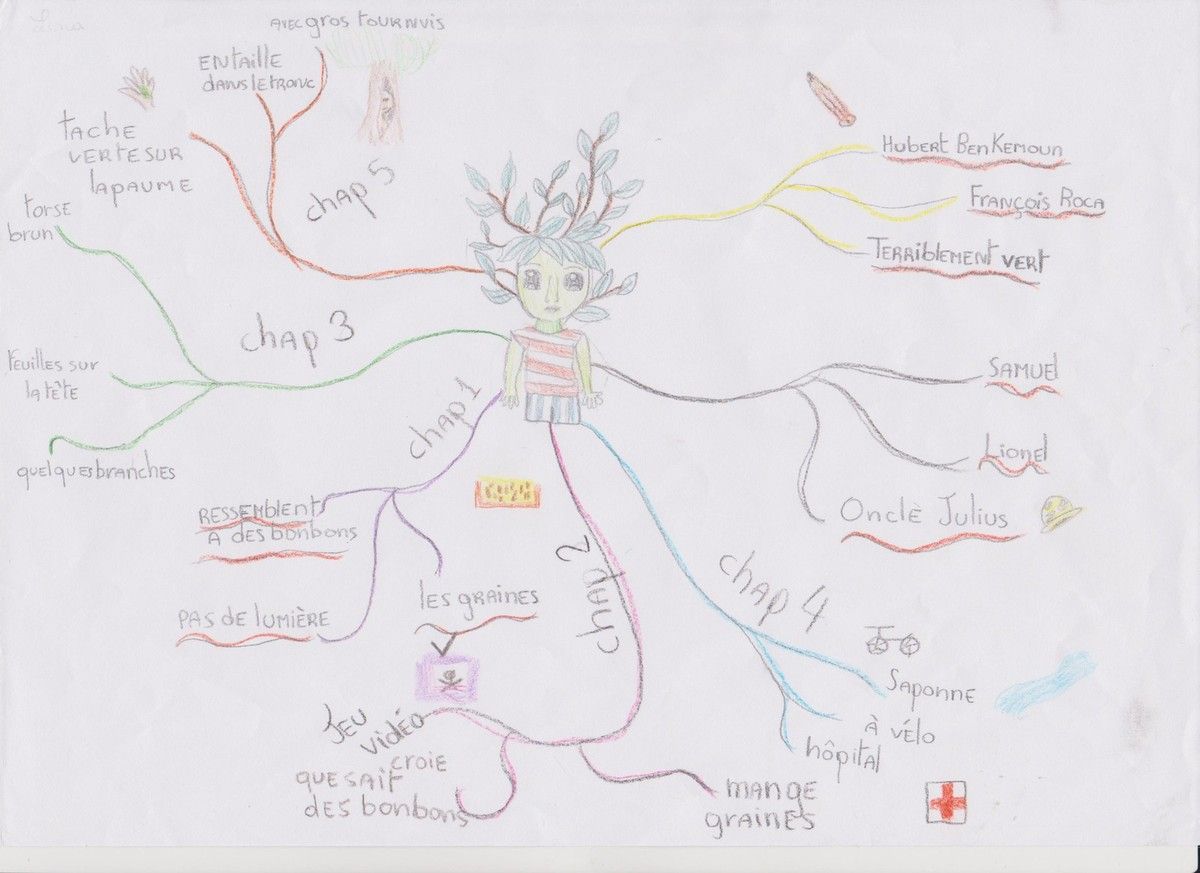 Lina
AVEC gros TOURNVIS
ENTAILLE
dans le tronc
tache
verte sur
la paume
chap 5
torse
brun
chap 3
feuilles sur
la tête
quelques branches
chap 1
RESSEMBLENT
A des bonbons
PAS DE LUMIÈRE
les graines
chap 2
JEU
vidéo
croie
que sait
des bonbons
mange
graines
chap 4
Saponne
à vélo
hôpital
Hubert Ben Kemoun
François Roca
Terriblement vert
SAMUEL
Lionel
Onclè Julius